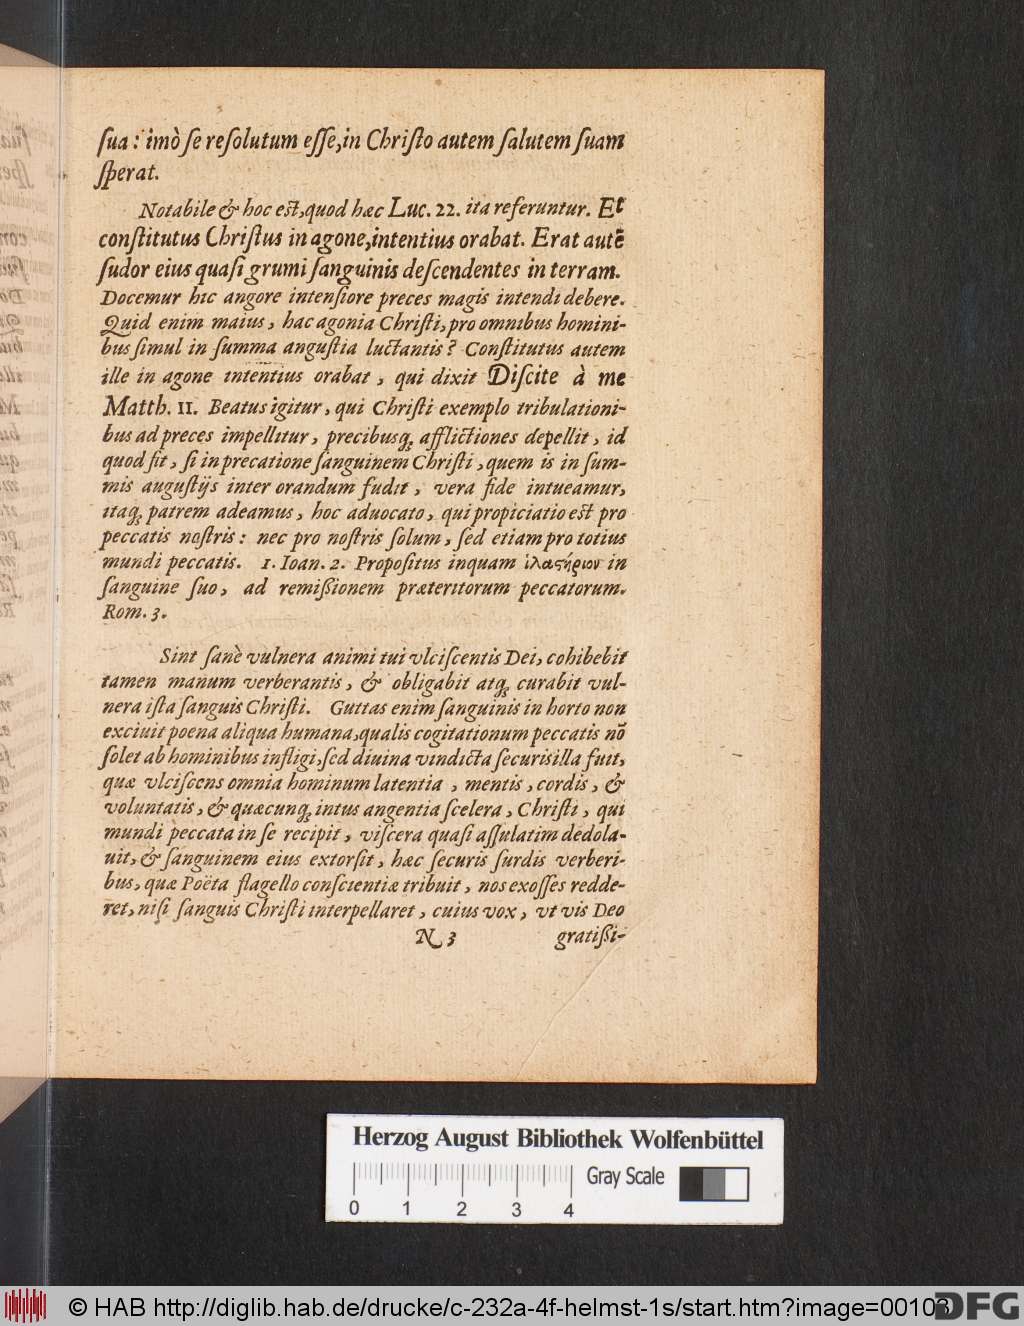 ſua: imò ſe reſolutum eſſe, in Chriſto autem ſalutem ſuam
ſperat.
Notabile & hoc eſt, quod hæc Luc. 22. ita referuntur. Et
conſtitutus Chriſtus in agone, intentius orabat. Erat autẽ
ſudor eius quaſi grumi ſanguinis deſcendentes in terram.
Docemur hic angore intenſiore preces magis intendi debere.
Quid enim maius, hac agonia Chriſti, pro omnibus homini-
bus ſimul in ſumma anguſtia luctantis? Conſtitutus autem
ille in agone intentius orabat, qui dixit Diſcite à me
Matth. 11. Beatus igitur, qui Chriſti exemplo tribulationi-
bus ad preces impellitur, precibusq́; afflictiones depellit, id
quod fit, ſi in precatione ſanguinem Chriſti, quem is in ſum-
mis auguſtijs inter orandum fudit, vera fide intueamur,
itaq́; patrem adeamus, hoc aduocato, qui propiciatio eſt pro
peccatis noſtris: nec pro noſtris ſolum, ſed etiam pro totius
mundi peccatis. 1. Ioan. 2. Propoſitus inquam ἱλαστήριον in
ſanguine ſuo, ad remißionem præteritorum peccatorum.
Rom. 3.
Sint ſanè vulnera animi tui vlciſcentis Dei, cohibebit
tamen manum verberantis, & obligabit atq́; curabit vul-
nera iſta ſanguis Chriſti. Guttas enim ſanguinis in horto non
exciuit poena aliqua humana, qualis cogitationum peccatis nõ
ſolet ab hominibus infligi, ſed diuina vindicta ſecuris illa fuit,
quæ vlciſcens omnia hominum latentia, mentis, cordis, &
voluntatis, & quæcunq́; intus angentia ſcelera, Chriſti, qui
mundi peccata in ſe recipit, viſcera quaſi aſſulatim dedola-
uit, & ſanguinem eius extorſit, hæc ſecuris ſurdis verberi-
bus, quæ Poëta flagello conſcientiæ tribuit, nos exoſſes redde-
ret, niſi ſanguis Chriſti interpellaret, cuius vox, vt vis Deo
N 3 gratißi-
Herzog August Bibliothek Wolfenbüttel
Gray Scale
0 1 2 3 4
© HAB http://diglib.hab.de/drucke/c-232a-4f-helmst-1s/start.htm?image=00103
DFG